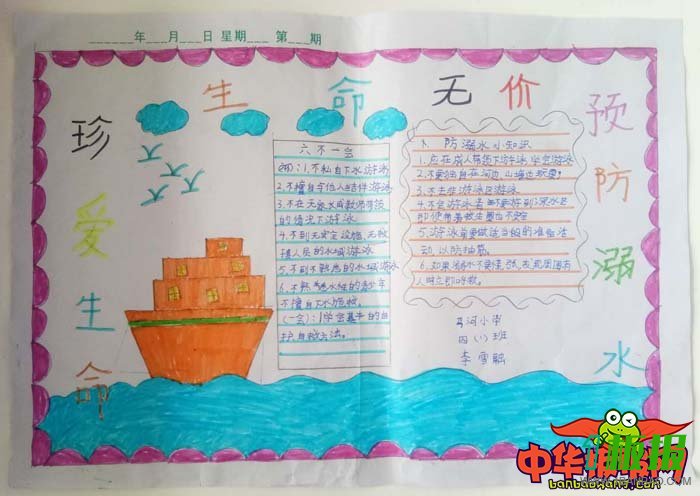 年 月 日 星期 第 期
生命无价
珍爱生命
预防溺水
六不一会
1.不私自下水游泳
2.不擅自与他人结伴游泳
3.不在无家长或教师带领
的情况下游泳
4.不到无安全设施、无救
援人员的水域游泳
5.不到不熟悉的水域游泳
6.不熟悉水性的青少年
不擅自下水施救
(一会):1学会基本的自
护自救方法。
防溺水小知识
1.应在成人带领下游泳学会游泳
2.不要独自在河边、山塘边玩耍。
3.不去非游泳区游泳
4.不会游泳者 不要游到深水区
即使带着救生圈也不安全
5.游泳前要做适当的准备活
动,以防抽筋。
6.如果溺水不要慌张,发现周围有
人时立即呼救。
河小学
四(1)班
李雪融
中华 报网
banbaowang.com